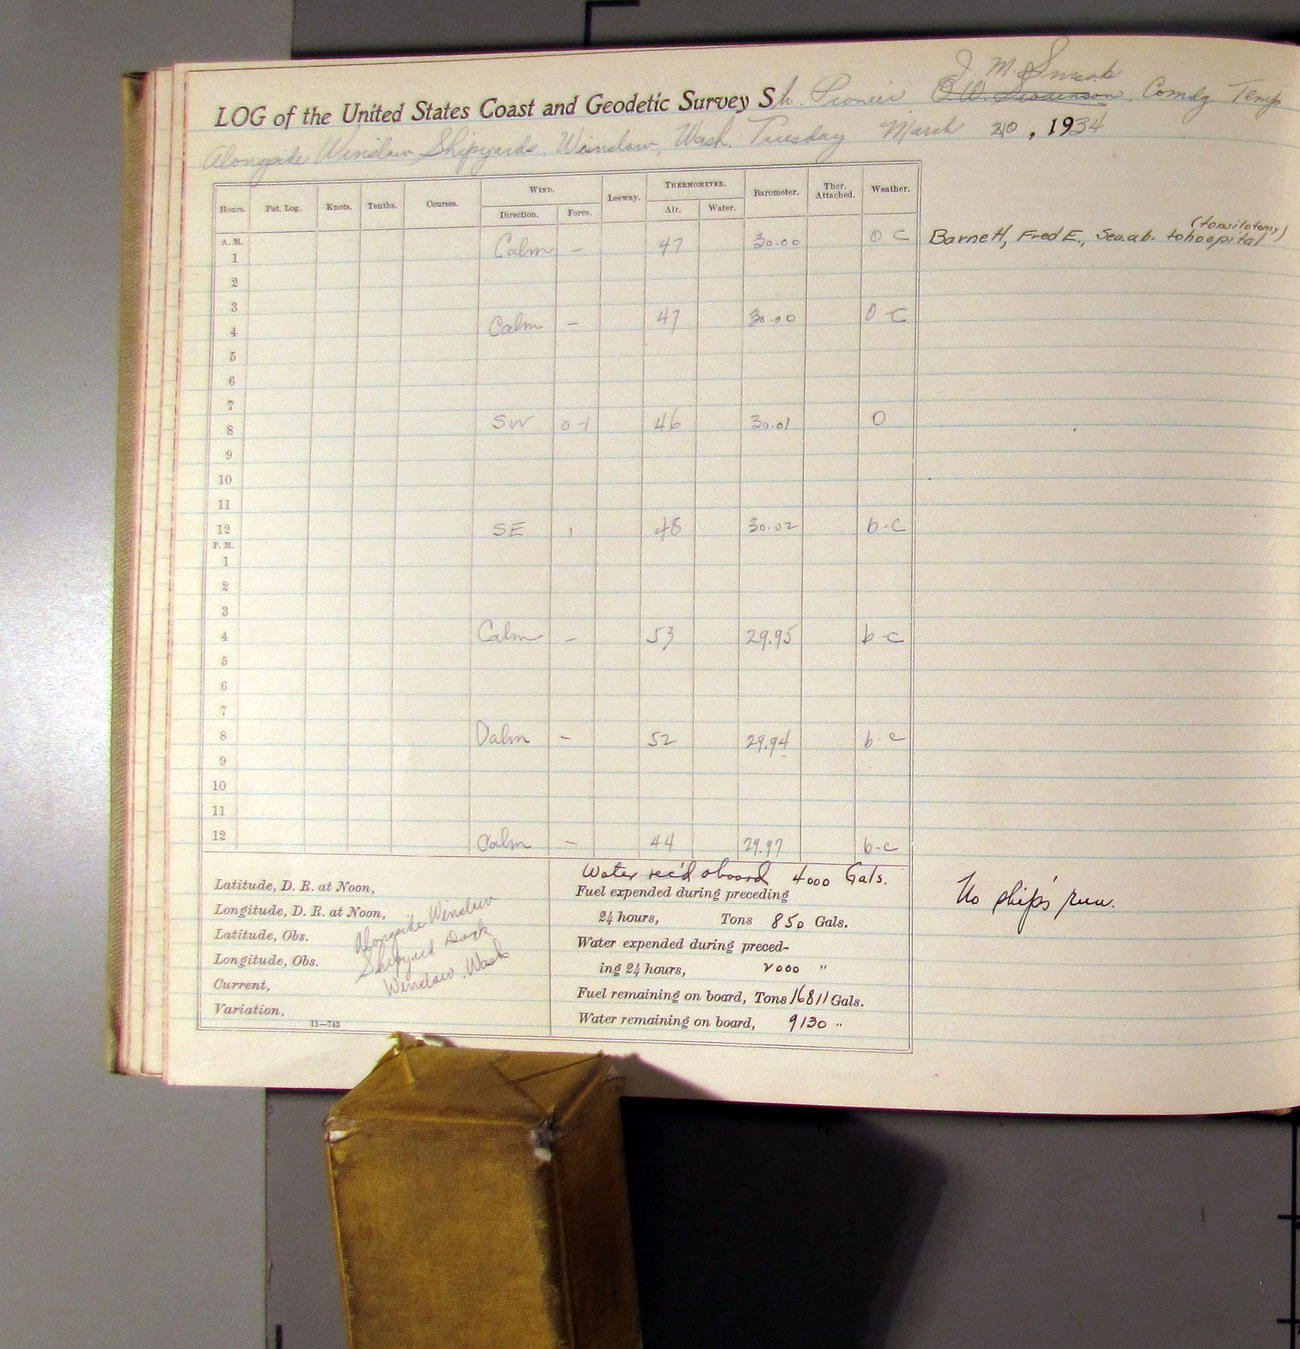 J. M. Smook
LOG of the United States Coast and Geodetic Survey Sh. Pioneer O.W. Swainson, Comdg Temp
Alongside Winslow Shipyards, Winslow, Wash. Tuesday March 20, 1934
Hours. Pat. Log. Knots. Tenths. Courses. WIND. Leeway. THERMOMETER. Barometer. Ther. Attached. Weather.
Direction. Force. Air. Water.
(tonsilotomy)
A. M. Calm – 47 30.00 O C Barnett, Fred E., Sea.2b. to hospital
1
2
3
4 Calm – 47 30.00 O-C
5
6
7
8 SW 0-1 46 30.01 O
9
10
11
12 SE 1 48 30.02 b-c
P. M.
1
2
3
4 Calm – 53 29.95 b-c
5
6
7
8 Calm – 52 29.94 b-c
9
10
11
12 Calm – 44 29.97 b-c
Water rec'd aboard 4000 Gals.
Latitude, D. R. at Noon, Fuel expended during preceding
Longitude, D. R. at Noon, 24 hours, Tons 850 Gals.
Latitude, Obs. Water expended during preced-
Longitude, Obs. ing 24 hours, 2000 "
Current, Fuel remaining on board, Tons 16811 Gals.
Variation, Water remaining on board, 9130 "
Alongside Winslow
Shipyard Dock
Winslow, Wash
11—743
No ship's run.